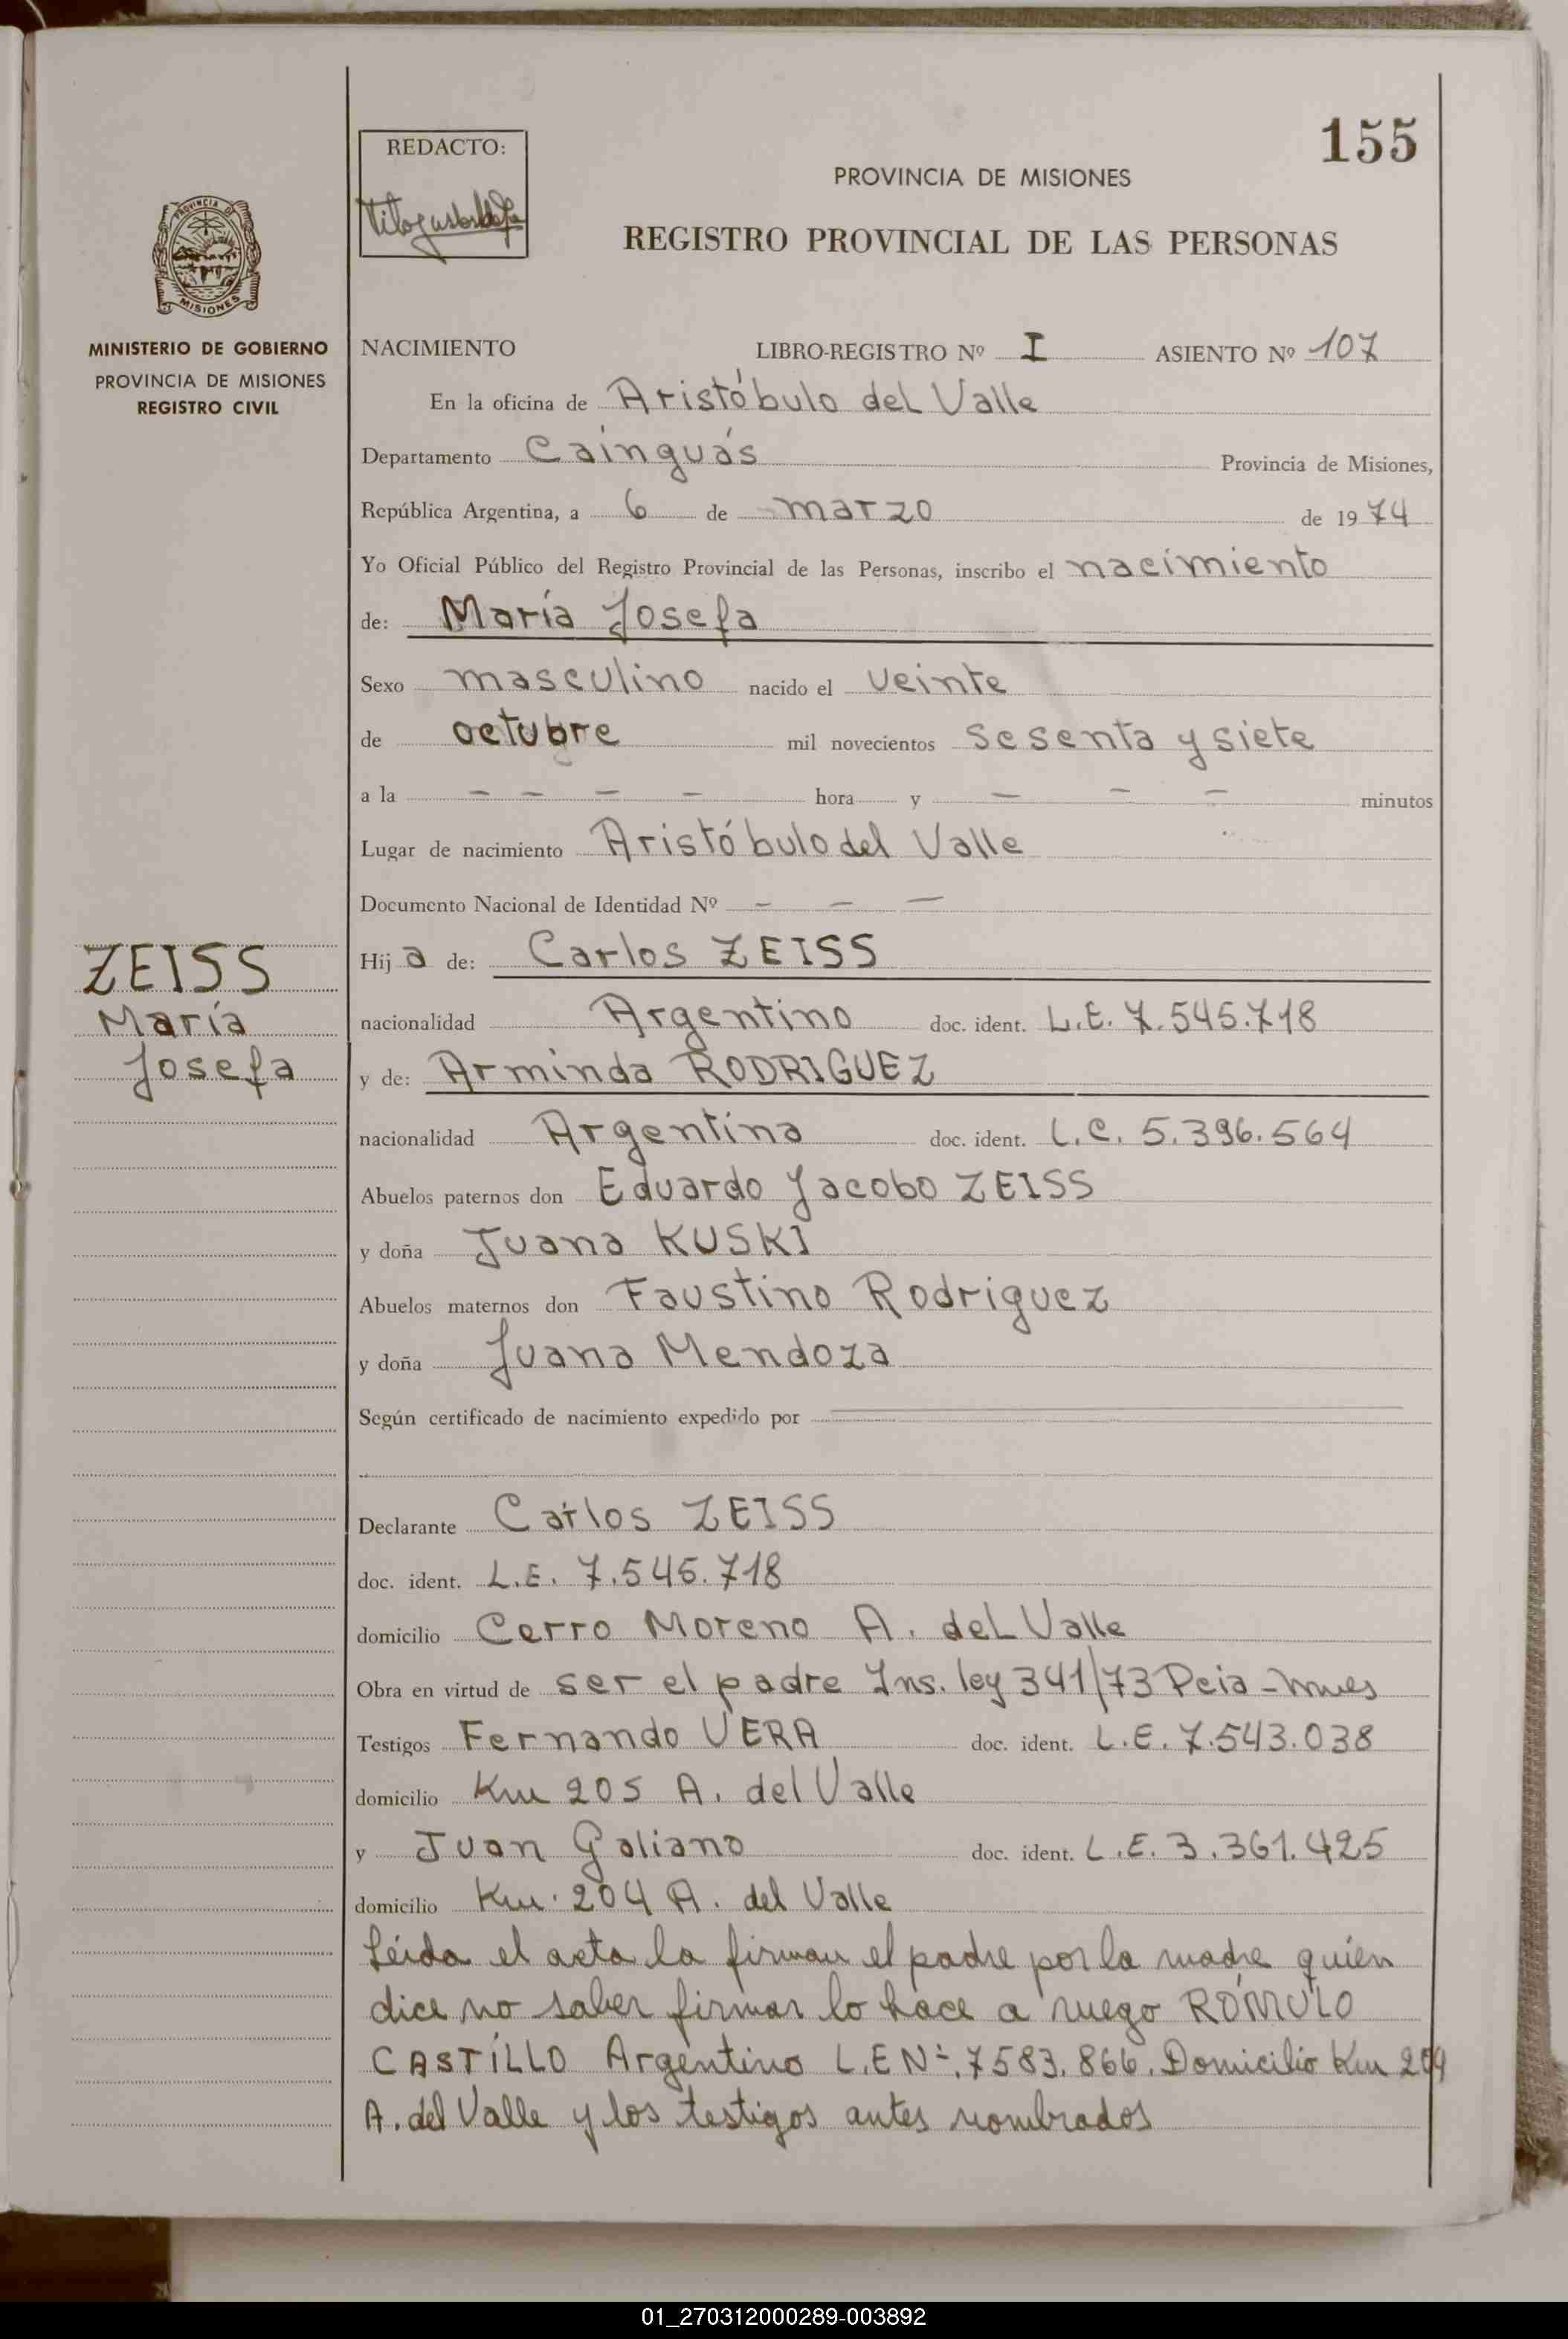 155
REDACTO:
PROVINCIA DE MISIONES
REGISTRO PROVINCIAL DE LAS PERSONAS
PROVINCIA DE
MISIONES
MINISTERIO DE GOBIERNO
PROVINCIA DE MISIONES
REGISTRO CIVIL
NACIMIENTO LIBRO-REGISTRO Nº I ASIENTO Nº 107
En la oficina de Aristóbulo del Valle
Departamento Cainguás Provincia de Misiones,
República Argentina, a 6 de marzo de 1974
Yo Oficial Público del Registro Provincial de las Personas, inscribo el nacimiento
de: María Josefa
Sexo masculino nacido el veinte
de octubre mil novecientos sesenta y siete
a la - - - - hora y - - - minutos
Lugar de nacimiento Aristóbulo del Valle
Documento Nacional de Identidad Nº - - -
ZEISS
María
Josefa
Hija de: Carlos ZEISS
nacionalidad Argentino doc. ident. L.E. 7.545.718
y de: Arminda RODRIGUEZ
nacionalidad Argentina doc. ident. L.C. 5.396.564
Abuelos paternos don Eduardo Jacobo ZEISS
y doña Juana KUSKI
Abuelos maternos don Faustino Rodriguez
y doña Juana Mendoza
Según certificado de nacimiento expedido por
Declarante Carlos ZEISS
doc. ident. L.E. 7.545.718
domicilio Cerro Moreno A. del Valle
Obra en virtud de ser el padre Ins. ley 341/73 Pcia
Testigos Fernando VERA doc. ident. L.E. 7.543.038
domicilio Km 205 A. del Valle
y Juan Galiano doc. ident. L.E. 3.361.425
domicilio Km. 204 A. del Valle
Leída el acta la firman el padre por la madre quien
dice no saber firmar lo hace a ruego RÓMULO
CASTILLO Argentino L.E Nº. 7583.866. Domicilio Km 204
A. del Valle y los testigos antes nombrados
01_270312000289-003892